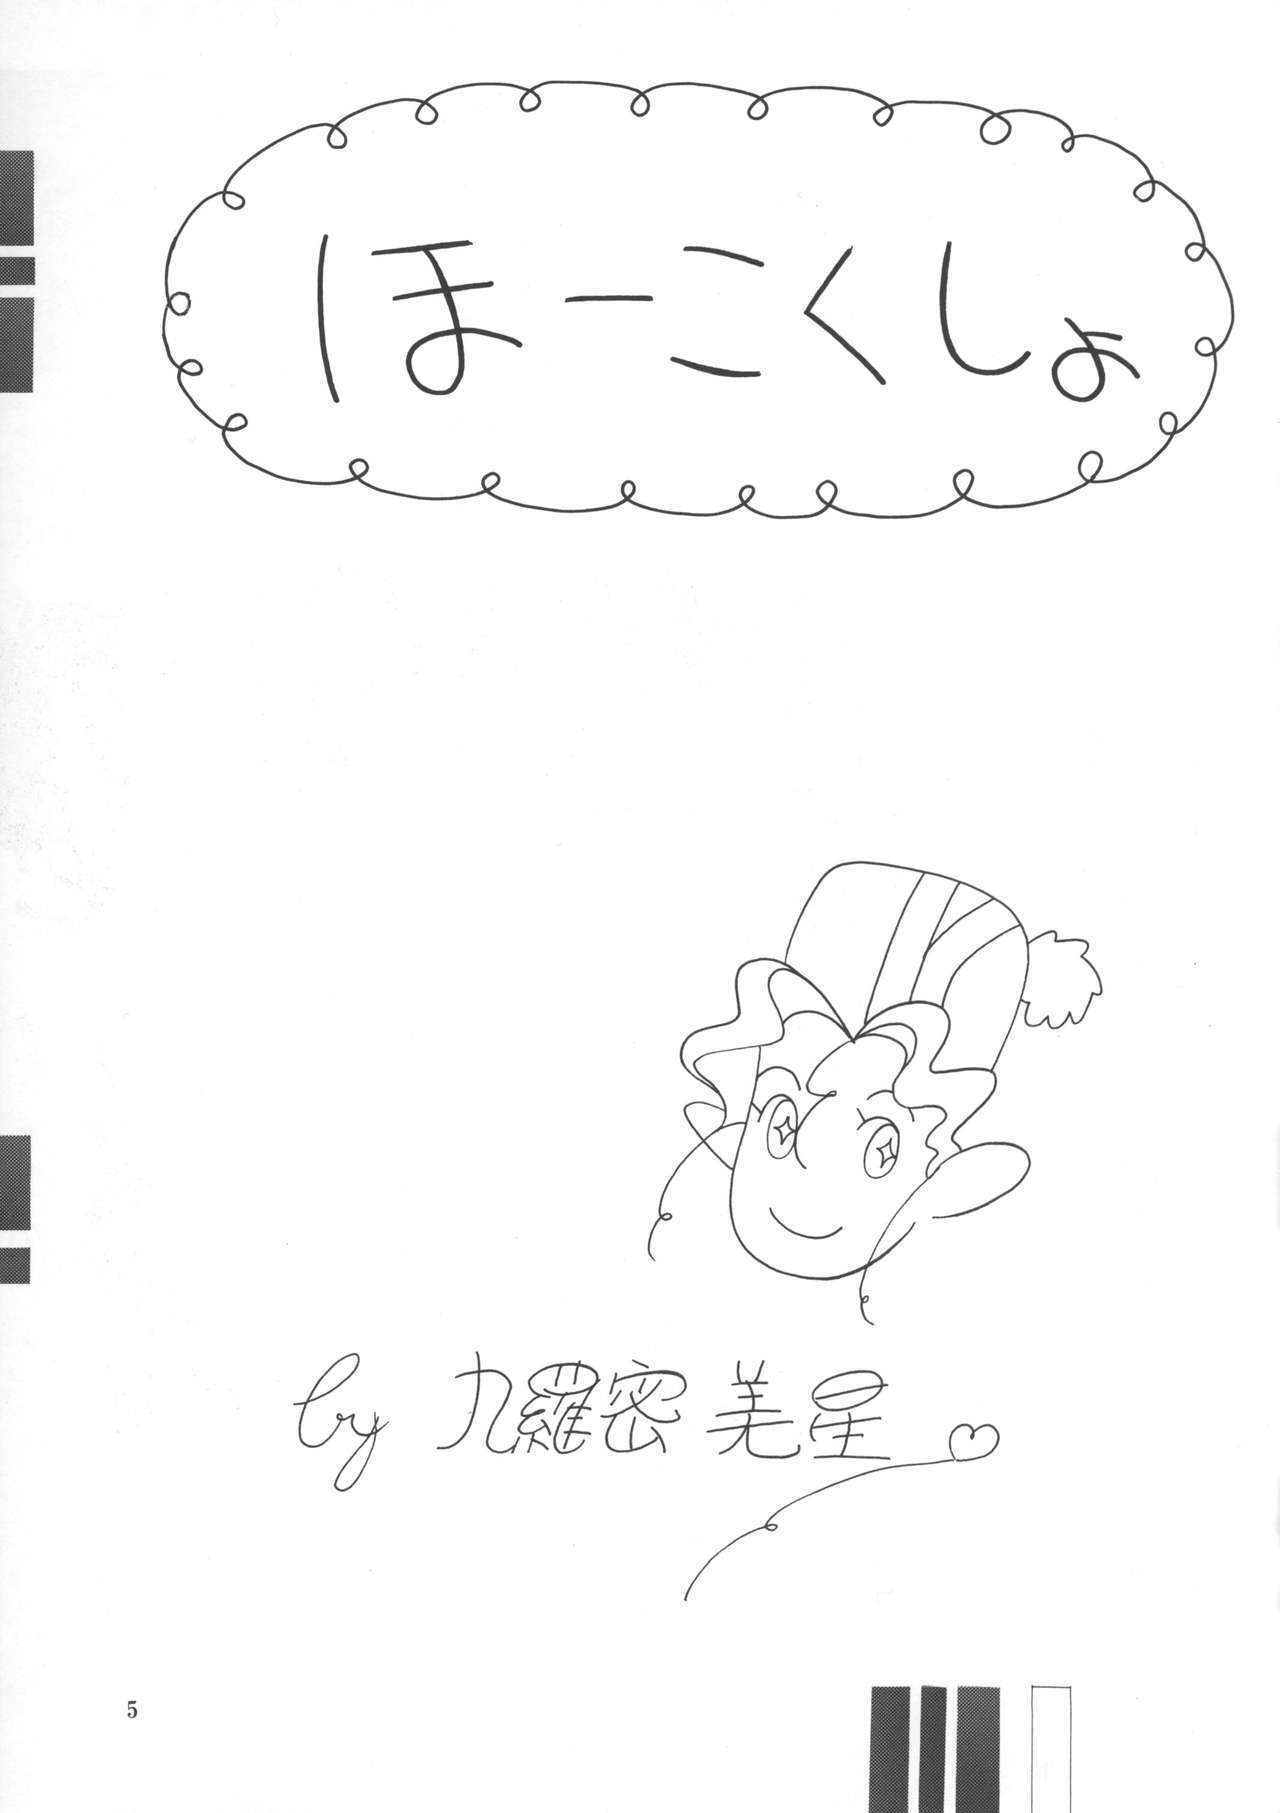 ほーこくしょ
by 九羅密 美星
5